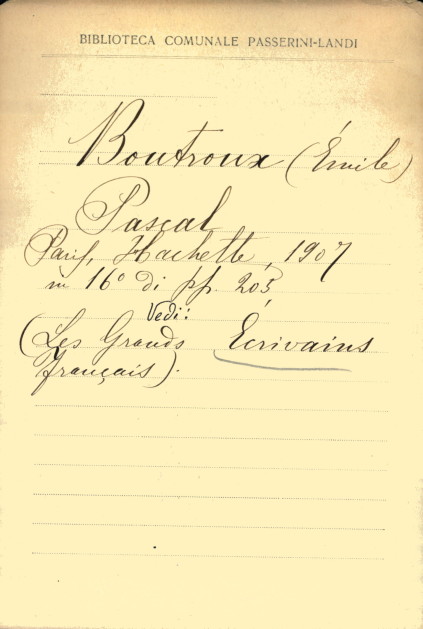 BIBLIOTECA COMUNALE PASSERINI-LANDI
Boutroux (Émile)
Pascal
Paris, Hachette, 1907
in 16° di pp. 205,
Vedi:
(Les Grands Écrivains
français).